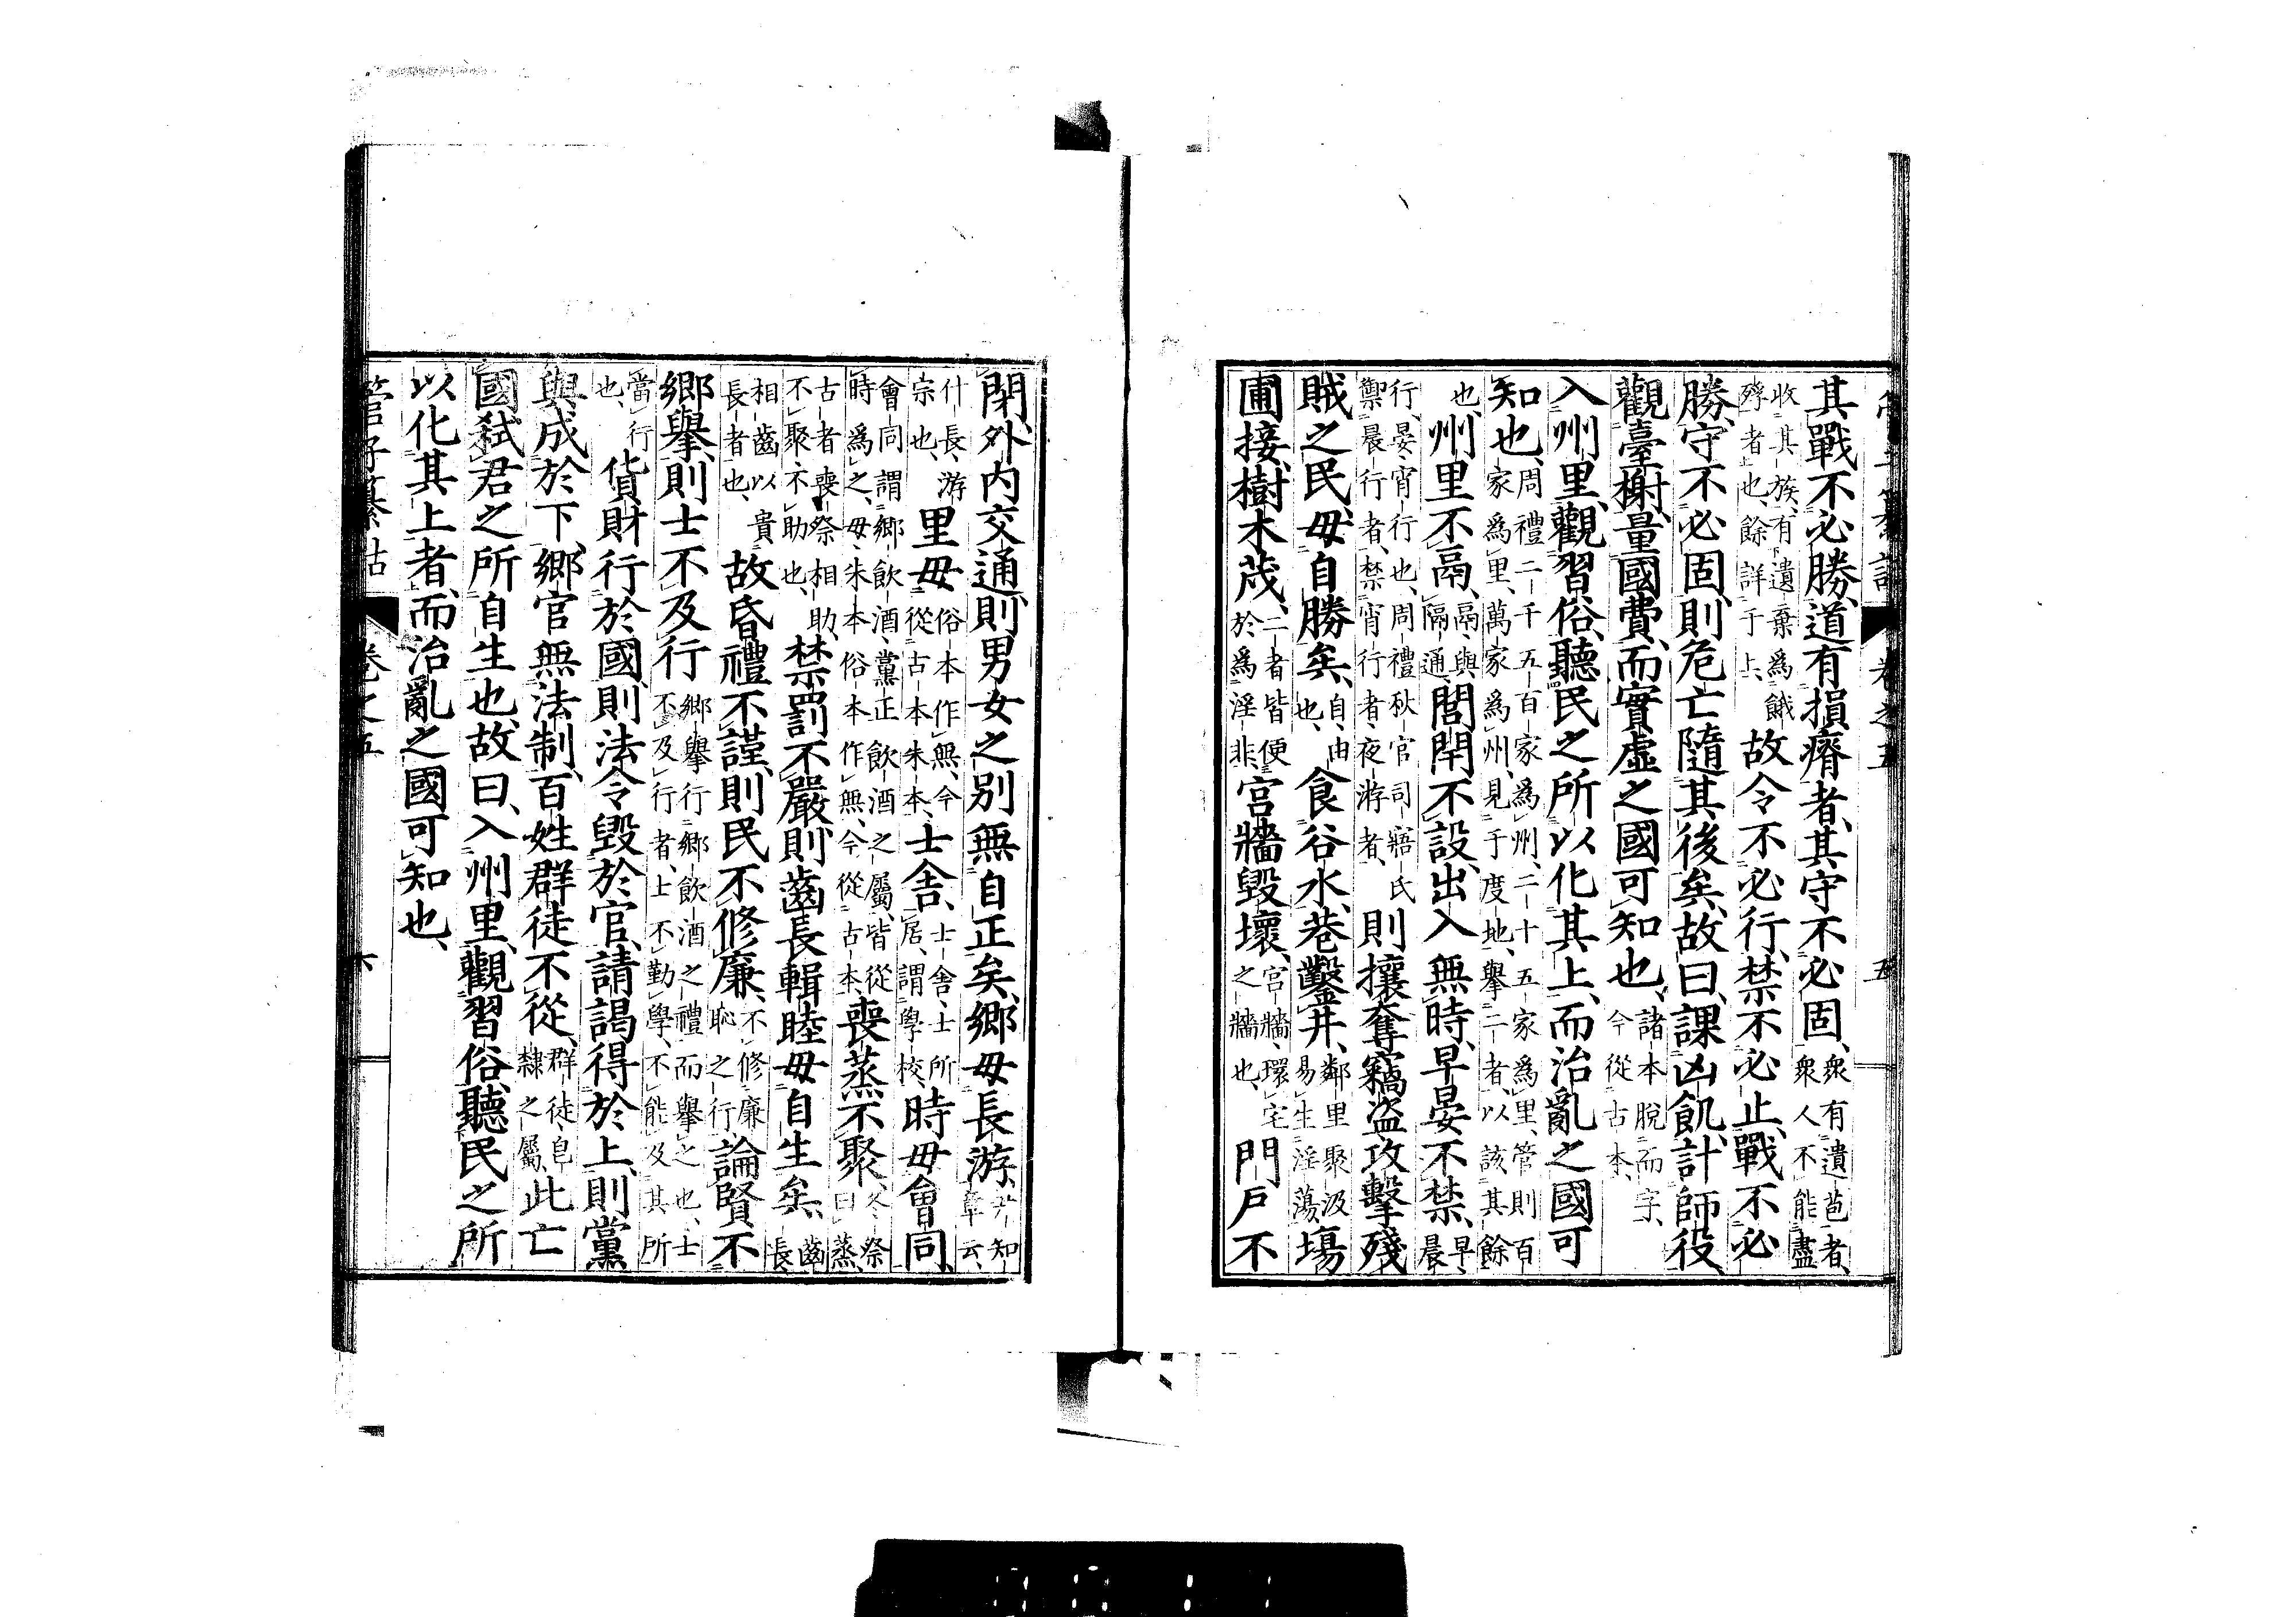 其戰不必勝、道有損瘠者、其守不必固、衆有遺苞者、衆人不能盡
收其族、有遺棄爲餓殍者也、餘詳于上、故令不必行、禁不必止、戰不必
勝、守不必固、則危亡隨其後矣、故曰、課凶飢、計師役、
觀臺榭、量國費、而實虛之國可知也、諸本脫而字、今從古本、
入州里、觀習俗、聽民之所以化其上、而治亂之國可
知也、周禮二千五百家爲州、二十五家爲里、管則百家爲里、萬家爲州、見于度地、擧二者、以該其餘
也、州里不鬲、鬲、與隔通、閭閈不設、出入無時、早晏不禁、早、晨
行、晏、宵行也、周禮秋官司寤氏禦晨行者、禁宵行者、夜游者、則攘奪竊盜、攻擊殘
賊之民、毋自勝矣、自、由也、食谷水、巷鑿井、鄰里聚汲易生淫蕩、場
圃接、樹木茂、二者皆便於爲淫非、宮牆毀壞、宮牆、環宅之牆也、門戶不
管子纂詁 卷之五 五
閉、外內交通、則男女之別無自正矣、鄉毋長游、弟知章云、
什長、游宗也、里毋俗本作無、今從古本朱本、士舍、士舍、士所居、謂學校、時毋會同、
會同謂鄉飲酒、黨正飲酒之屬、皆從時爲之、毋朱本俗本作無、今從古本、喪蒸不聚、冬祭曰蒸、
古者喪祭相助、不聚不助也、禁罰不嚴、則齒長輯睦毋自生矣、齒長、
相齒以貴長者也、故昏禮不謹、則民不修廉、不修廉恥之行論賢不
鄉擧、則士不及行鄉擧行鄉飲酒之禮而擧之也、士不及行者、士不勤學、不能及其所
當行也、貨財行於國、則法令毀於官、請謁得於上、則黨
與成於下、鄉官無法制、百姓群徒不從、群徒、皂隸之屬、此亡
國弒君之所自生也、故曰、入州里、觀習俗、聽民之所
以化其上者、而治亂之國可知也、
管子纂詁 卷之五 六